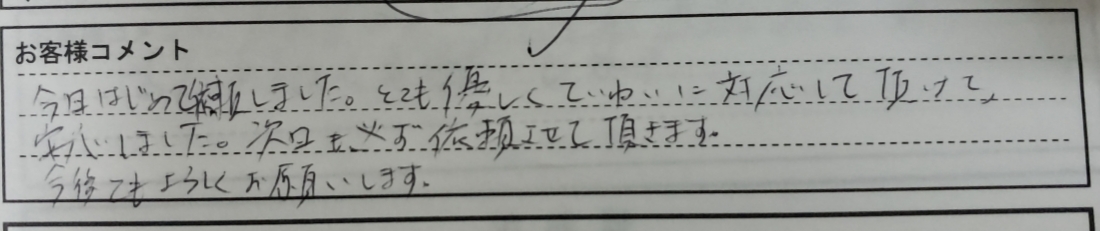 お客様コメント
今回はじめて しました。とても優しくていねいに対応して頂けて、
安心しました。次回も必ず依頼させて頂きます。
今後ともよろしくお願いします。